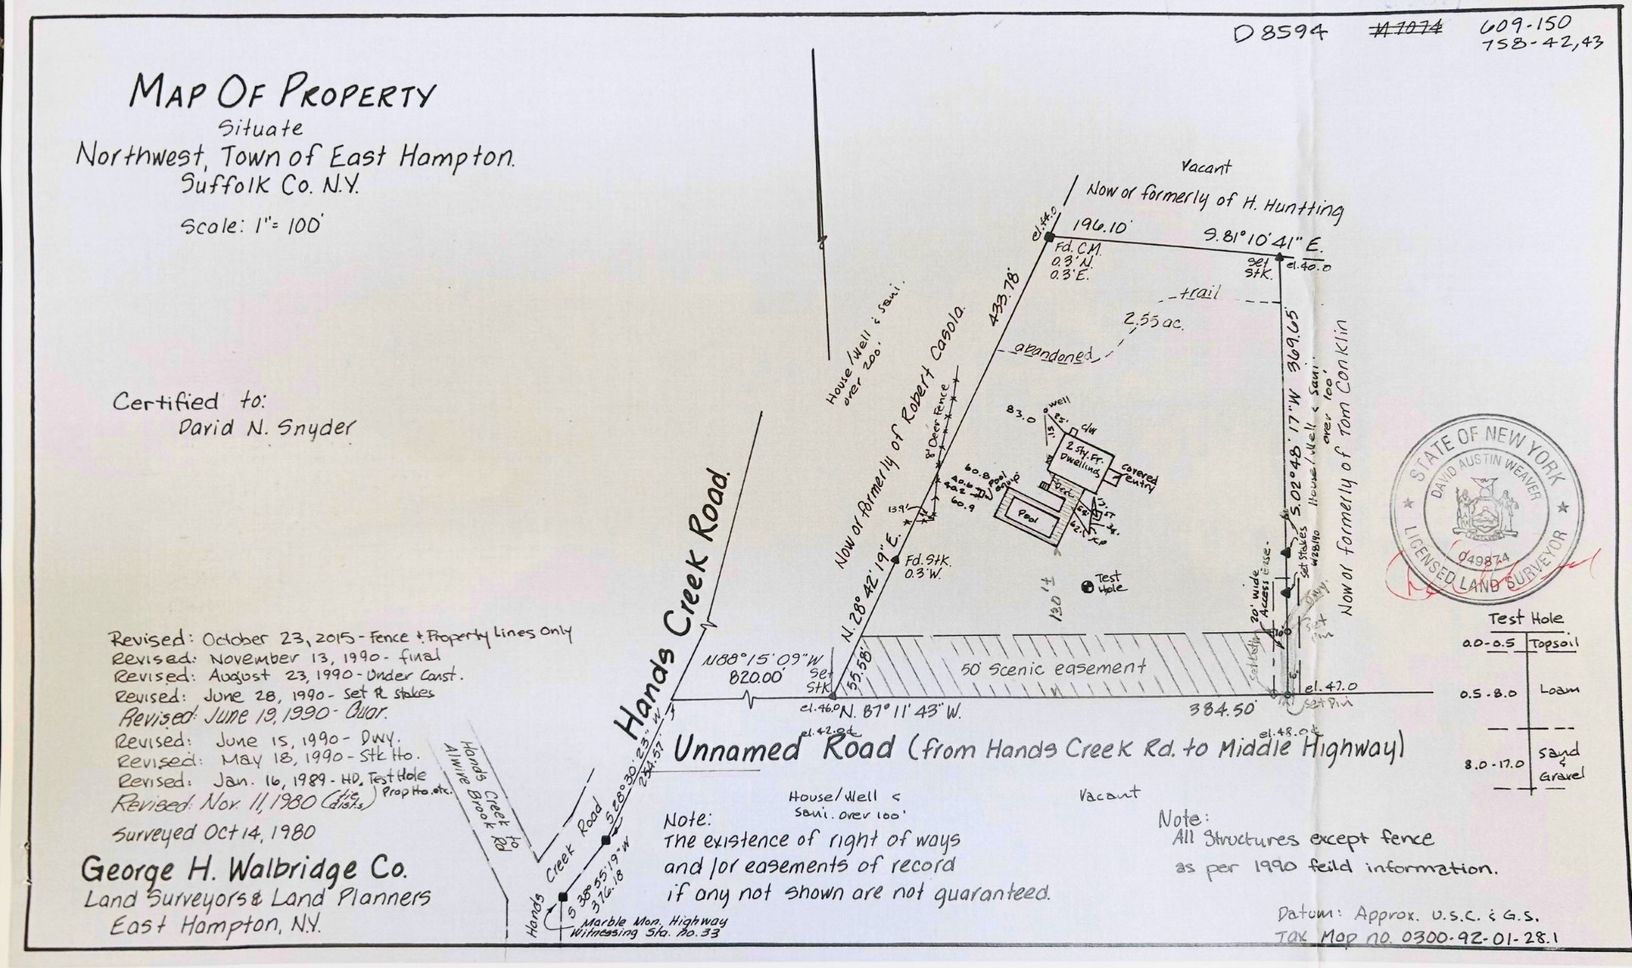 D 8594
A7074
609-150
758-42,43
MAP OF PROPERTY
Situate
Northwest, Town of East Hampton.
Suffolk Co. N.Y.
Scale: 1"= 100'
Certified to:
David N. Snyder
Vacant
Now or formerly of H. Huntting
el.44.0
196.10'
S.81°10'41" E.
Fd. C.M.
0.3'N.
0.3'E.
Set
Stk.
el.40.0
trail
2.55 ac.
abandoned
433.78'
House/Well & Sani.
over 200'
Now or formerly of Robert Casola.
8' Deer Fence
S.02°48'17"W 369.65'
House/Well & Sani.
over 100'
Now or formerly of Tom Conklin
83.0
well
C/W
2 Sty. Fr.
Dwelling
Covered
entry
60.8
pool
equip
60.9
Pool
13.9'
N.28°42'19"E.
Fd. Stk.
0.3'W.
130'±
Test
Hole
20' wide
Access Ease.
Set Stakes
STATE OF NEW YORK
DAVID AUSTIN WEAVER
049874
LICENSED LAND SURVEYOR
Hands Creek Road.
N88°15'09"W
820.00'
Set
Stk
55.58'
50' Scenic easement
el.47.0
el.46.0
N. 87°11'43" W.
384.50'
el.42.0±
el.48.0±
Unnamed Road (from Hands Creek Rd. to Middle Highway)
Test Hole
0.0-0.5 Topsoil
0.5-8.0 Loam
8.0-17.0 Sand
&
Gravel
Revised: October 23, 2015-Fence & Property Lines Only
Revised: November 13, 1990- final
Revised: August 23, 1990-Under Const.
Revised: June 28, 1990- Set R stakes
Revised: June 19, 1990- Guar.
Revised: June 15, 1990- Dwy.
Revised: May 18, 1990- Stk Ho.
Revised: Jan. 16, 1989-HD, Test Hole
Prop Ho. etc.
Revised: Nov. 11, 1980 (tie dists)
Surveyed Oct 14, 1980
George H. Walbridge Co.
Land Surveyors & Land Planners
East Hampton, N.Y.
Hands Creek to
Alwive Brook Rd
Hands Creek Road
S28°30'23"W
254.57
S 38°55'19"W
376.18
Marble Mon. Highway
Witnessing Sta. no. 33
House/Well &
Sani. over 100'
Vacant
Note:
The existence of right of ways
and/or easements of record
if any not shown are not guaranteed.
Note:
All Structures except fence
as per 1990 feild information.
Datum: Approx. U.S.C. & G.S.
Tax Map no. 0300-92-01-28.1